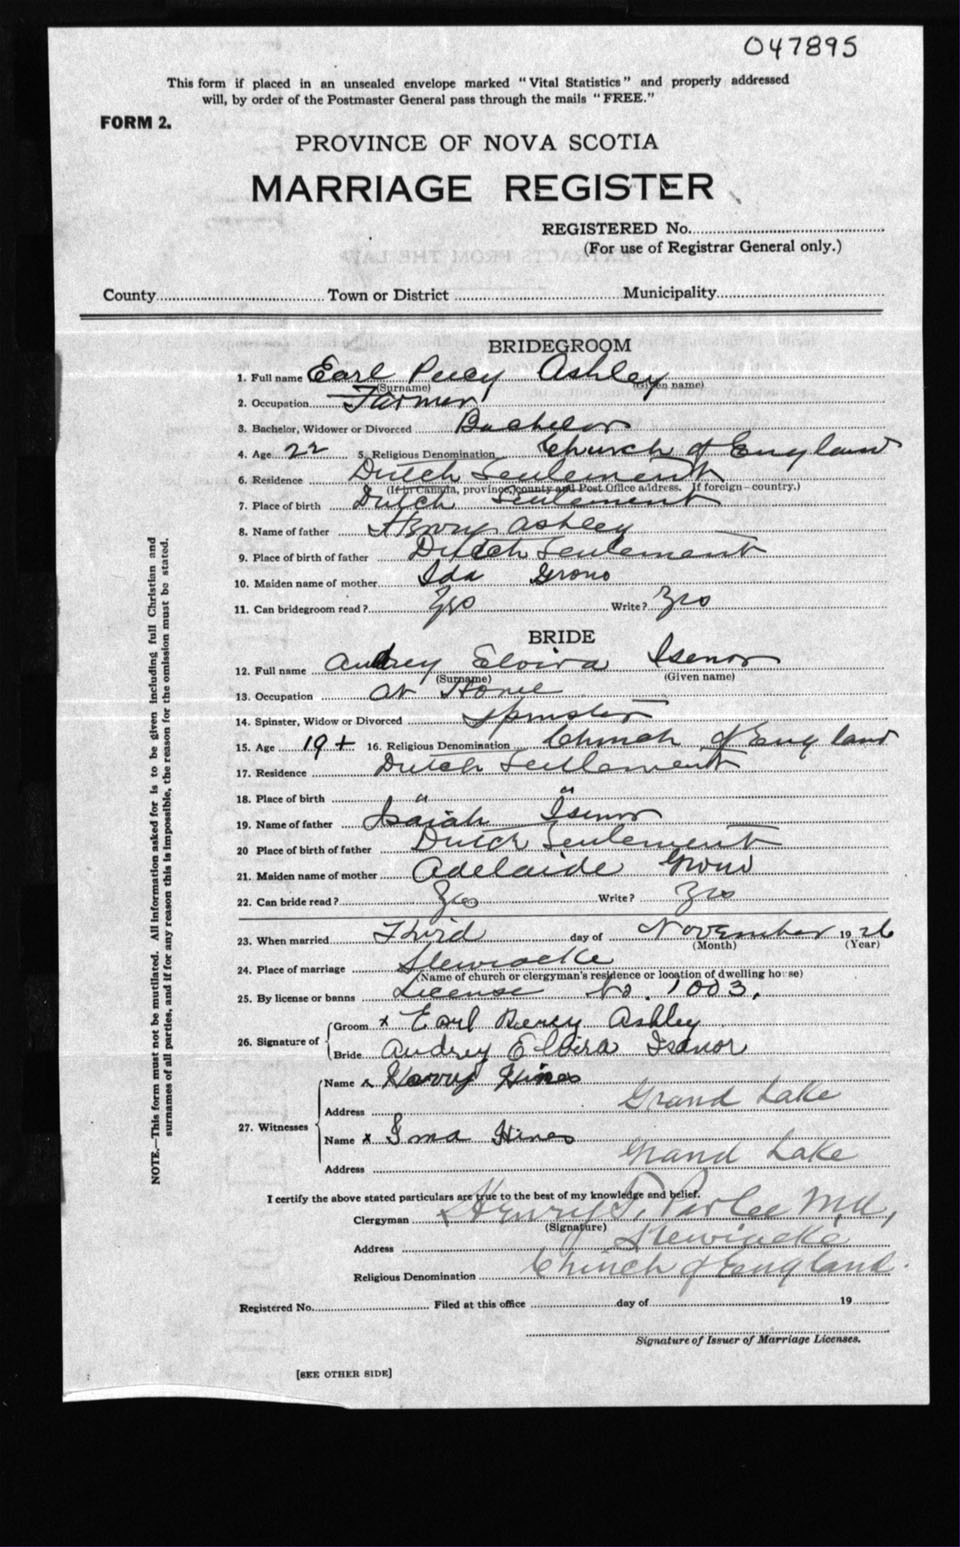 047895
This form if placed in an unsealed envelope marked "Vital Statistics" and properly addressed
will, by order of the Postmaster General pass through the mails "FREE."
FORM 2.
PROVINCE OF NOVA SCOTIA
MARRIAGE REGISTER
REGISTERED No.
(For use of Registrar General only.)
County Town or District Municipality
BRIDEGROOM
1. Full name Earl Percy Ashley
(Surname) (Given name)
2. Occupation Farmer
3. Bachelor, Widower or Divorced Bachelor
4. Age 22 5. Religious Denomination Church of England
6. Residence Dutch Settlement
(If in Canada, province, county and Post Office address. If foreign—country.)
7. Place of birth Dutch Settlement
8. Name of father Henry Ashley
9. Place of birth of father Dutch Settlement
10. Maiden name of mother Ida Grono
11. Can bridegroom read? Yes Write? Yes
BRIDE
12. Full name Audrey Elvira Isenor
(Surname) (Given name)
13. Occupation At Home
14. Spinster, Widow or Divorced Spinster
15. Age 19 + 16. Religious Denomination Church of England
17. Residence Dutch Settlement
18. Place of birth " "
19. Name of father Isaiah Isenor
20 Place of birth of father Dutch Settlement
21. Maiden name of mother Adelaide Grono
22. Can bride read? Yes Write? Yes
23. When married Third day of November 1926
(Month) (Year)
24. Place of marriage Stewiacke
(Name of church or clergyman's residence or location of dwelling house)
25. By license or banns License No. 1003.
26. Signature of Groom x Earl Percy Ashley
Bride Audrey Elvira Isanor
27. Witnesses Name x Harry Hines
Address Grand Lake
Name x Ima Hines
Address Grand Lake
I certify the above stated particulars are true to the best of my knowledge and belief.
Clergyman x Henry T. Parlee M.A.,
(Signature)
Address Stewiacke
Religious Denomination Church of England.
Registered No. Filed at this office day of 19
Signature of Issuer of Marriage Licenses.
[SEE OTHER SIDE]
NOTE.—This form must not be mutilated. All information asked for is to be given including full Christian and
surnames of all parties, and if for any reason this is impossible, the reason for the omission must be stated.